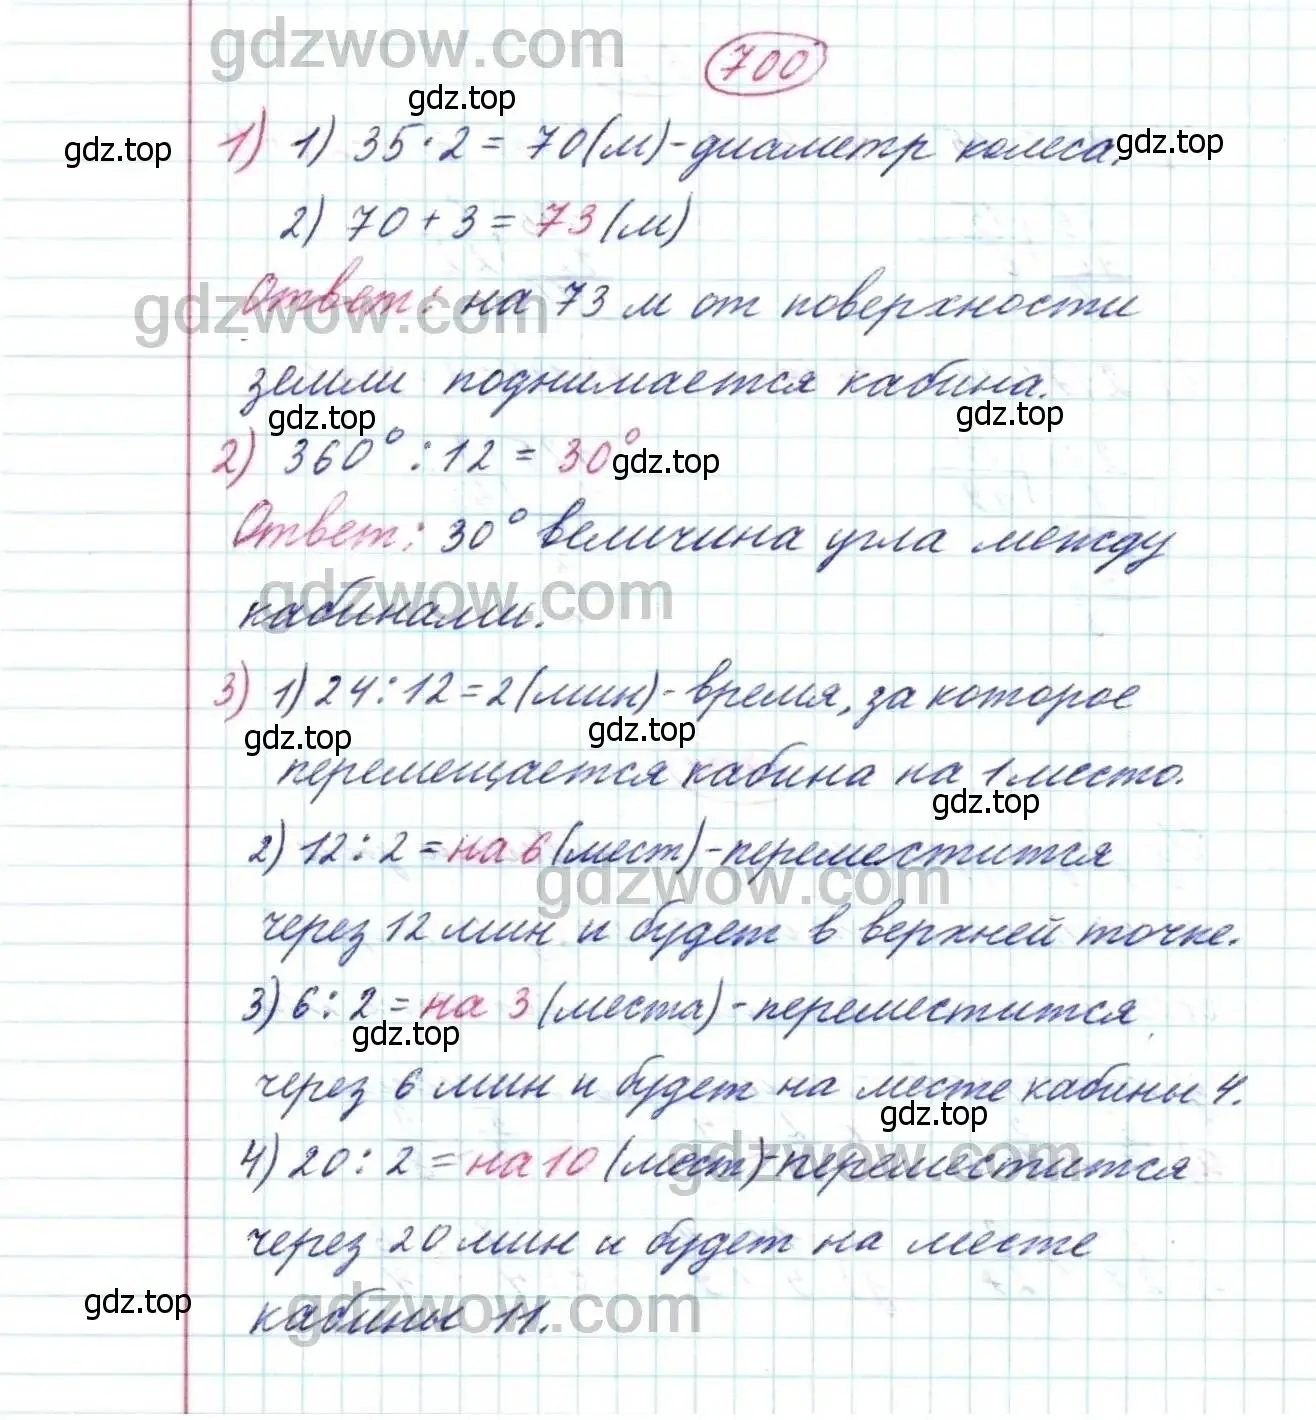 gdzwow.com
700
gdz.top
gdz.top
1) 1) 35·2=70(м)-диаметр колеса.
gdz.top
2) 70+3=73(м)
Ответ: на 73 м от поверхности
gdzwow.com
земли поднимается кабина.
gdz.top
gdz.top
2) 360°:12=30°
gdz.top
Ответ: 30° величина угла между
gdzwow.com
кабинами.
3) 1) 24:12=2(мин)-время, за которое
gdz.top
gdz.top
перемещается кабина на 1 место.
gdz.top
2) 12:2=на 6(мест)-переместится
gdzwow.com
через 12 мин и будет в верхней точке.
3) 6:2=на 3(места)-переместится
gdz.top
через 6 мин и будет на месте кабины 4.
gdz.top
gdzwow.com
4) 20:2=на 10(мест)-переместится
через 20 мин и будет на месте
gdz.top
gdzwow.com
кабины 11.